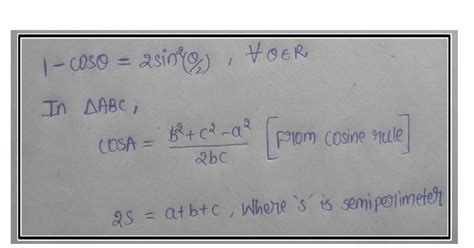 1-cosθ = 2sin²(θ/2), ∀ θ∈R
In ΔABC,
cosA = (b²+c²-a²)/2bc [From cosine rule]
2s = a+b+c, Where 's' is semiperimeter